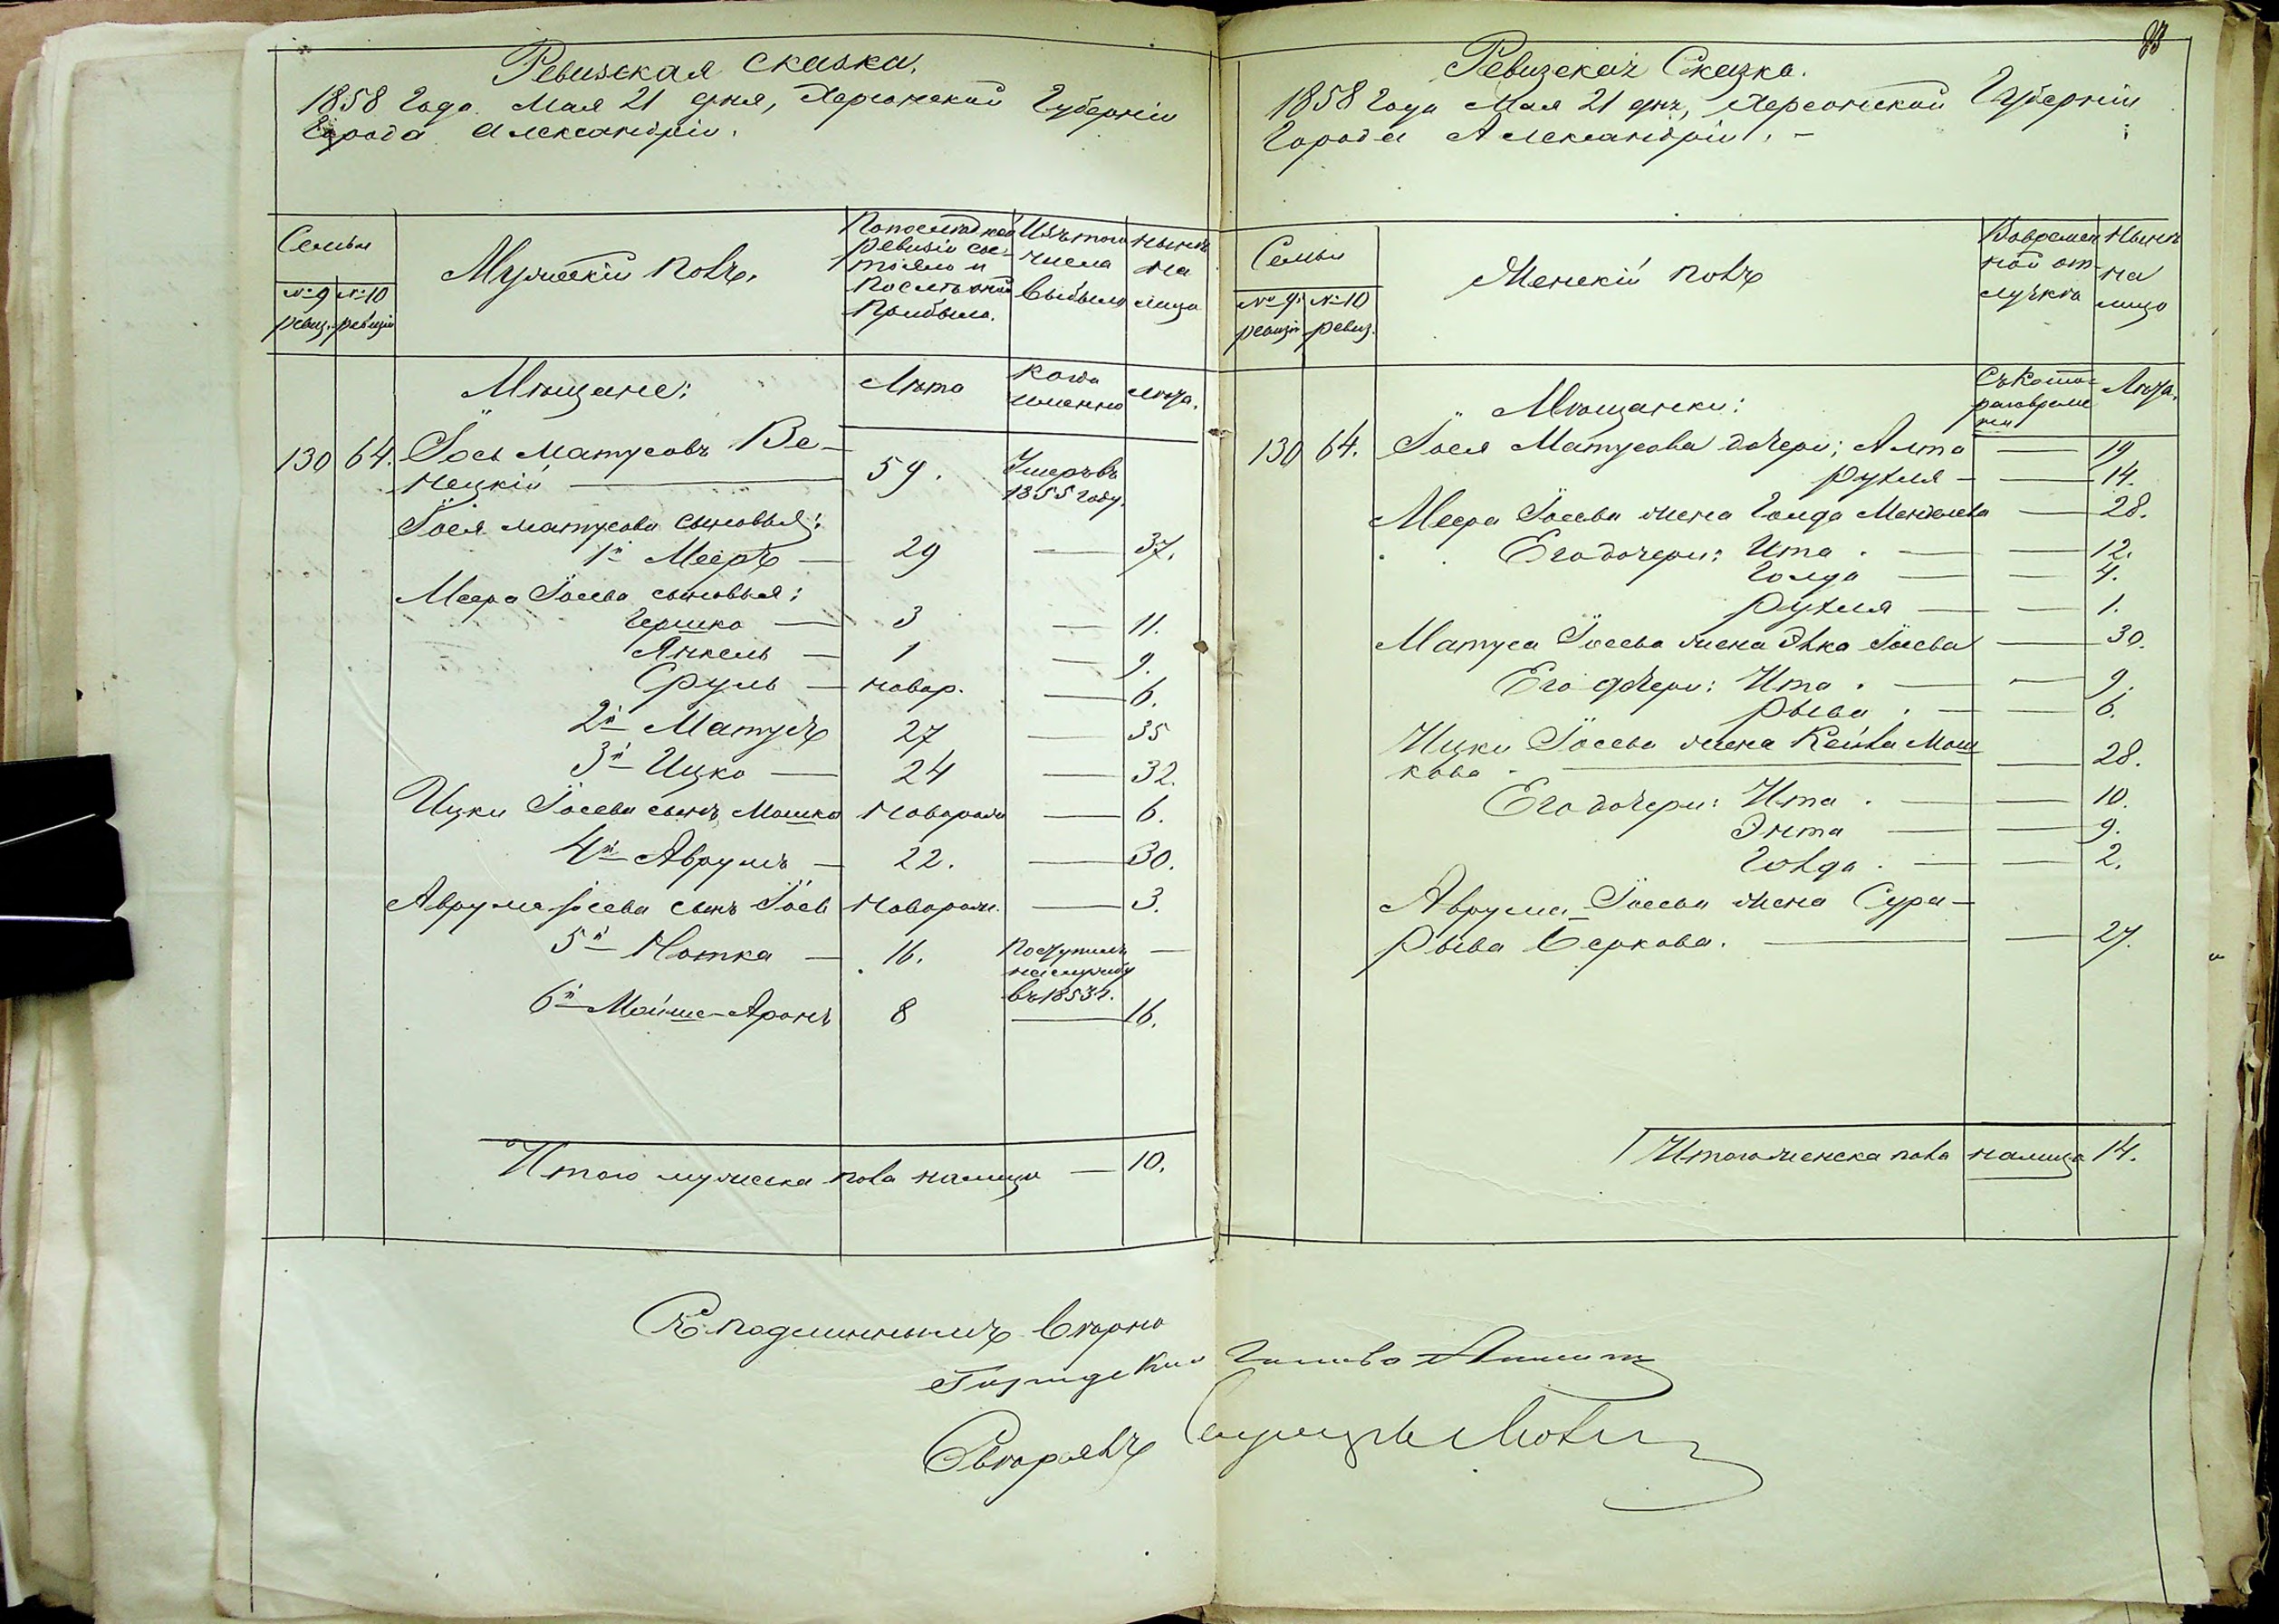 Ревизская сказка.
1858 Года Мая 21 дня, Херсонской Губерніи
Города Александріи.
Семьи
№ 9 ревиз.
№ 10 ревизіи
Мужескій полъ.
По последней
ревизіи сос-
тояло и
после оной
прибыло.
Изъ того
числа
выбыло
Ныне
на
лицо
Мѣщане:
Лѣта
Когда
именно
Лѣта.
130 64. Іось Матусовъ Ве-
нецкій — 59. Умеръ въ
1855 году.
Іося Матусова сыновья:
1й Мееръ — 29 — 37.
Меера Іосева сыновья:
Гершко — 3 — 11.
Янкель — 1 — 9.
Сруль — новор. — 6.
2й Матусъ 27 — 35
3й Ицко — 24 — 32.
Ицки Іосева сынъ Мошко Новорож — 6.
4й Аврумъ — 22. — 30.
Аврума Іосева сынъ Іось Новорож. — 3.
5й Нотка — 16. Поступилъ —
на службу
въ 1853 г.
6й Мойше-Аронъ 8 — 16.
Итого мужеска пола налицо — 10.
Съ подлиннымъ верно
23
Ревизская Сказка.
1858 Года Мая 21 дня, Херсонской Губерніи
Города Александріи. —
Семьи
№ 9. ревизіи
№ 10 ревиз.
Женскій полъ
Во времен
ной от-
лучке
Ныне
на
лицо
Мѣщанки:
Съ кото-
раго време
ни
Лѣта.
130 64. Іося Матусова дочери; Алта — 19
Рухля — — 14.
Меера Іосева жена Голда Менделева — 28.
Его дочери: Ита. — — 12.
Голда — — 4.
Рухля — — 1.
Матуса Іосева жена Элка Іосева — 30.
Его дочери: Ита. — — 9.
Рыва. — — 6.
Ицки Іосева жена Кейла Мош
кова. — — 28.
Его дочери: Ита. — — 10.
Энта — — 9.
Голда. — — 2.
Аврума Іосева жена Сура-
Рыва Беркова. — — 27.
Итого женска пола налицо 14.
Городской Голова
Сверялъ